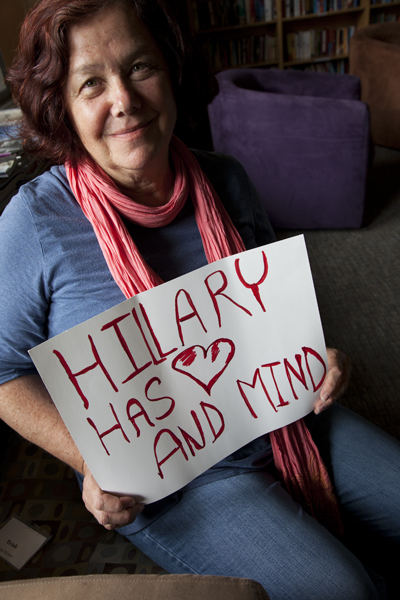 HILLARY
HAS ♥
AND MIND